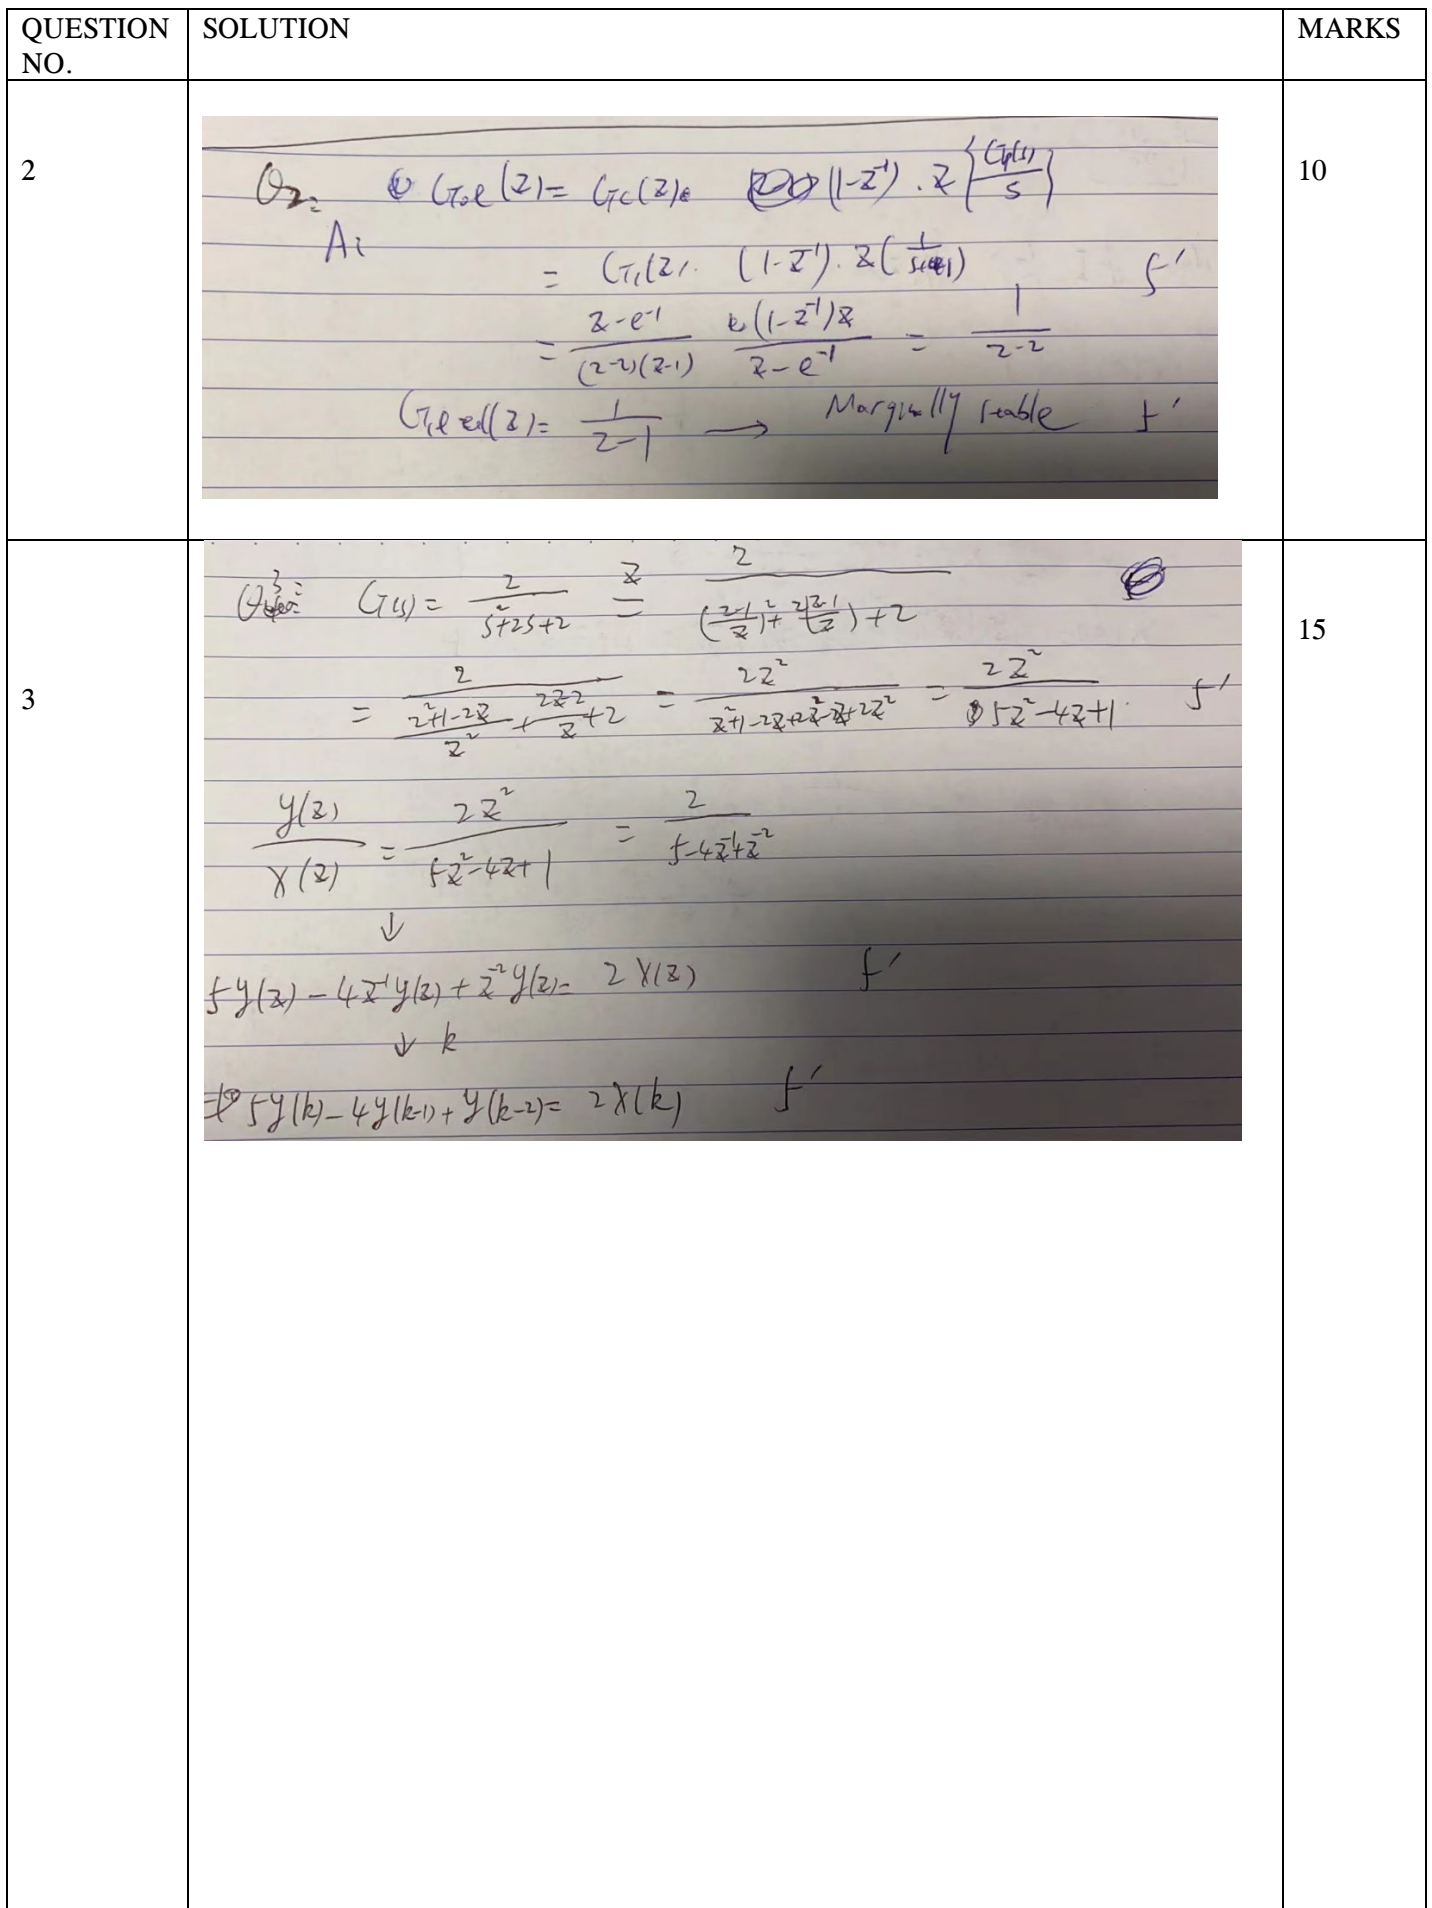 QUESTION NO.
SOLUTION
MARKS
2
10
Q2: Gol(z) = Gc(z). (1-z⁻¹) . Z{Gp(s)/s}
A:
= G1(z). (1-z⁻¹). Z( ) 5'
= (z-e⁻¹)/((z-2)(z-1)) (1-z⁻¹)z/(z-e⁻¹) = 1/(z-2)
= 1/(z-1) → Marginally stable 5'
3
15
Q3: G(s) = 2/(s²+2s+2) = 2/(((z-1)/z)² + 2((z-1)/z) + 2)
= 2/((z²+1-2z)/z² + (2z-2)/z + 2) = 2z²/(z²+1-2z+2z²-2z+2z²) = 2z²/(5z²-4z+1) 5'
y(z)/x(z) = 2z²/(5z²-4z+1) = 2/(5-4z⁻¹+z⁻²)
↓
5y(z) - 4z⁻¹y(z) + z⁻²y(z) = 2x(z) 5'
↓ k
⇒ 5y(k) - 4y(k-1) + y(k-2) = 2x(k) 5'